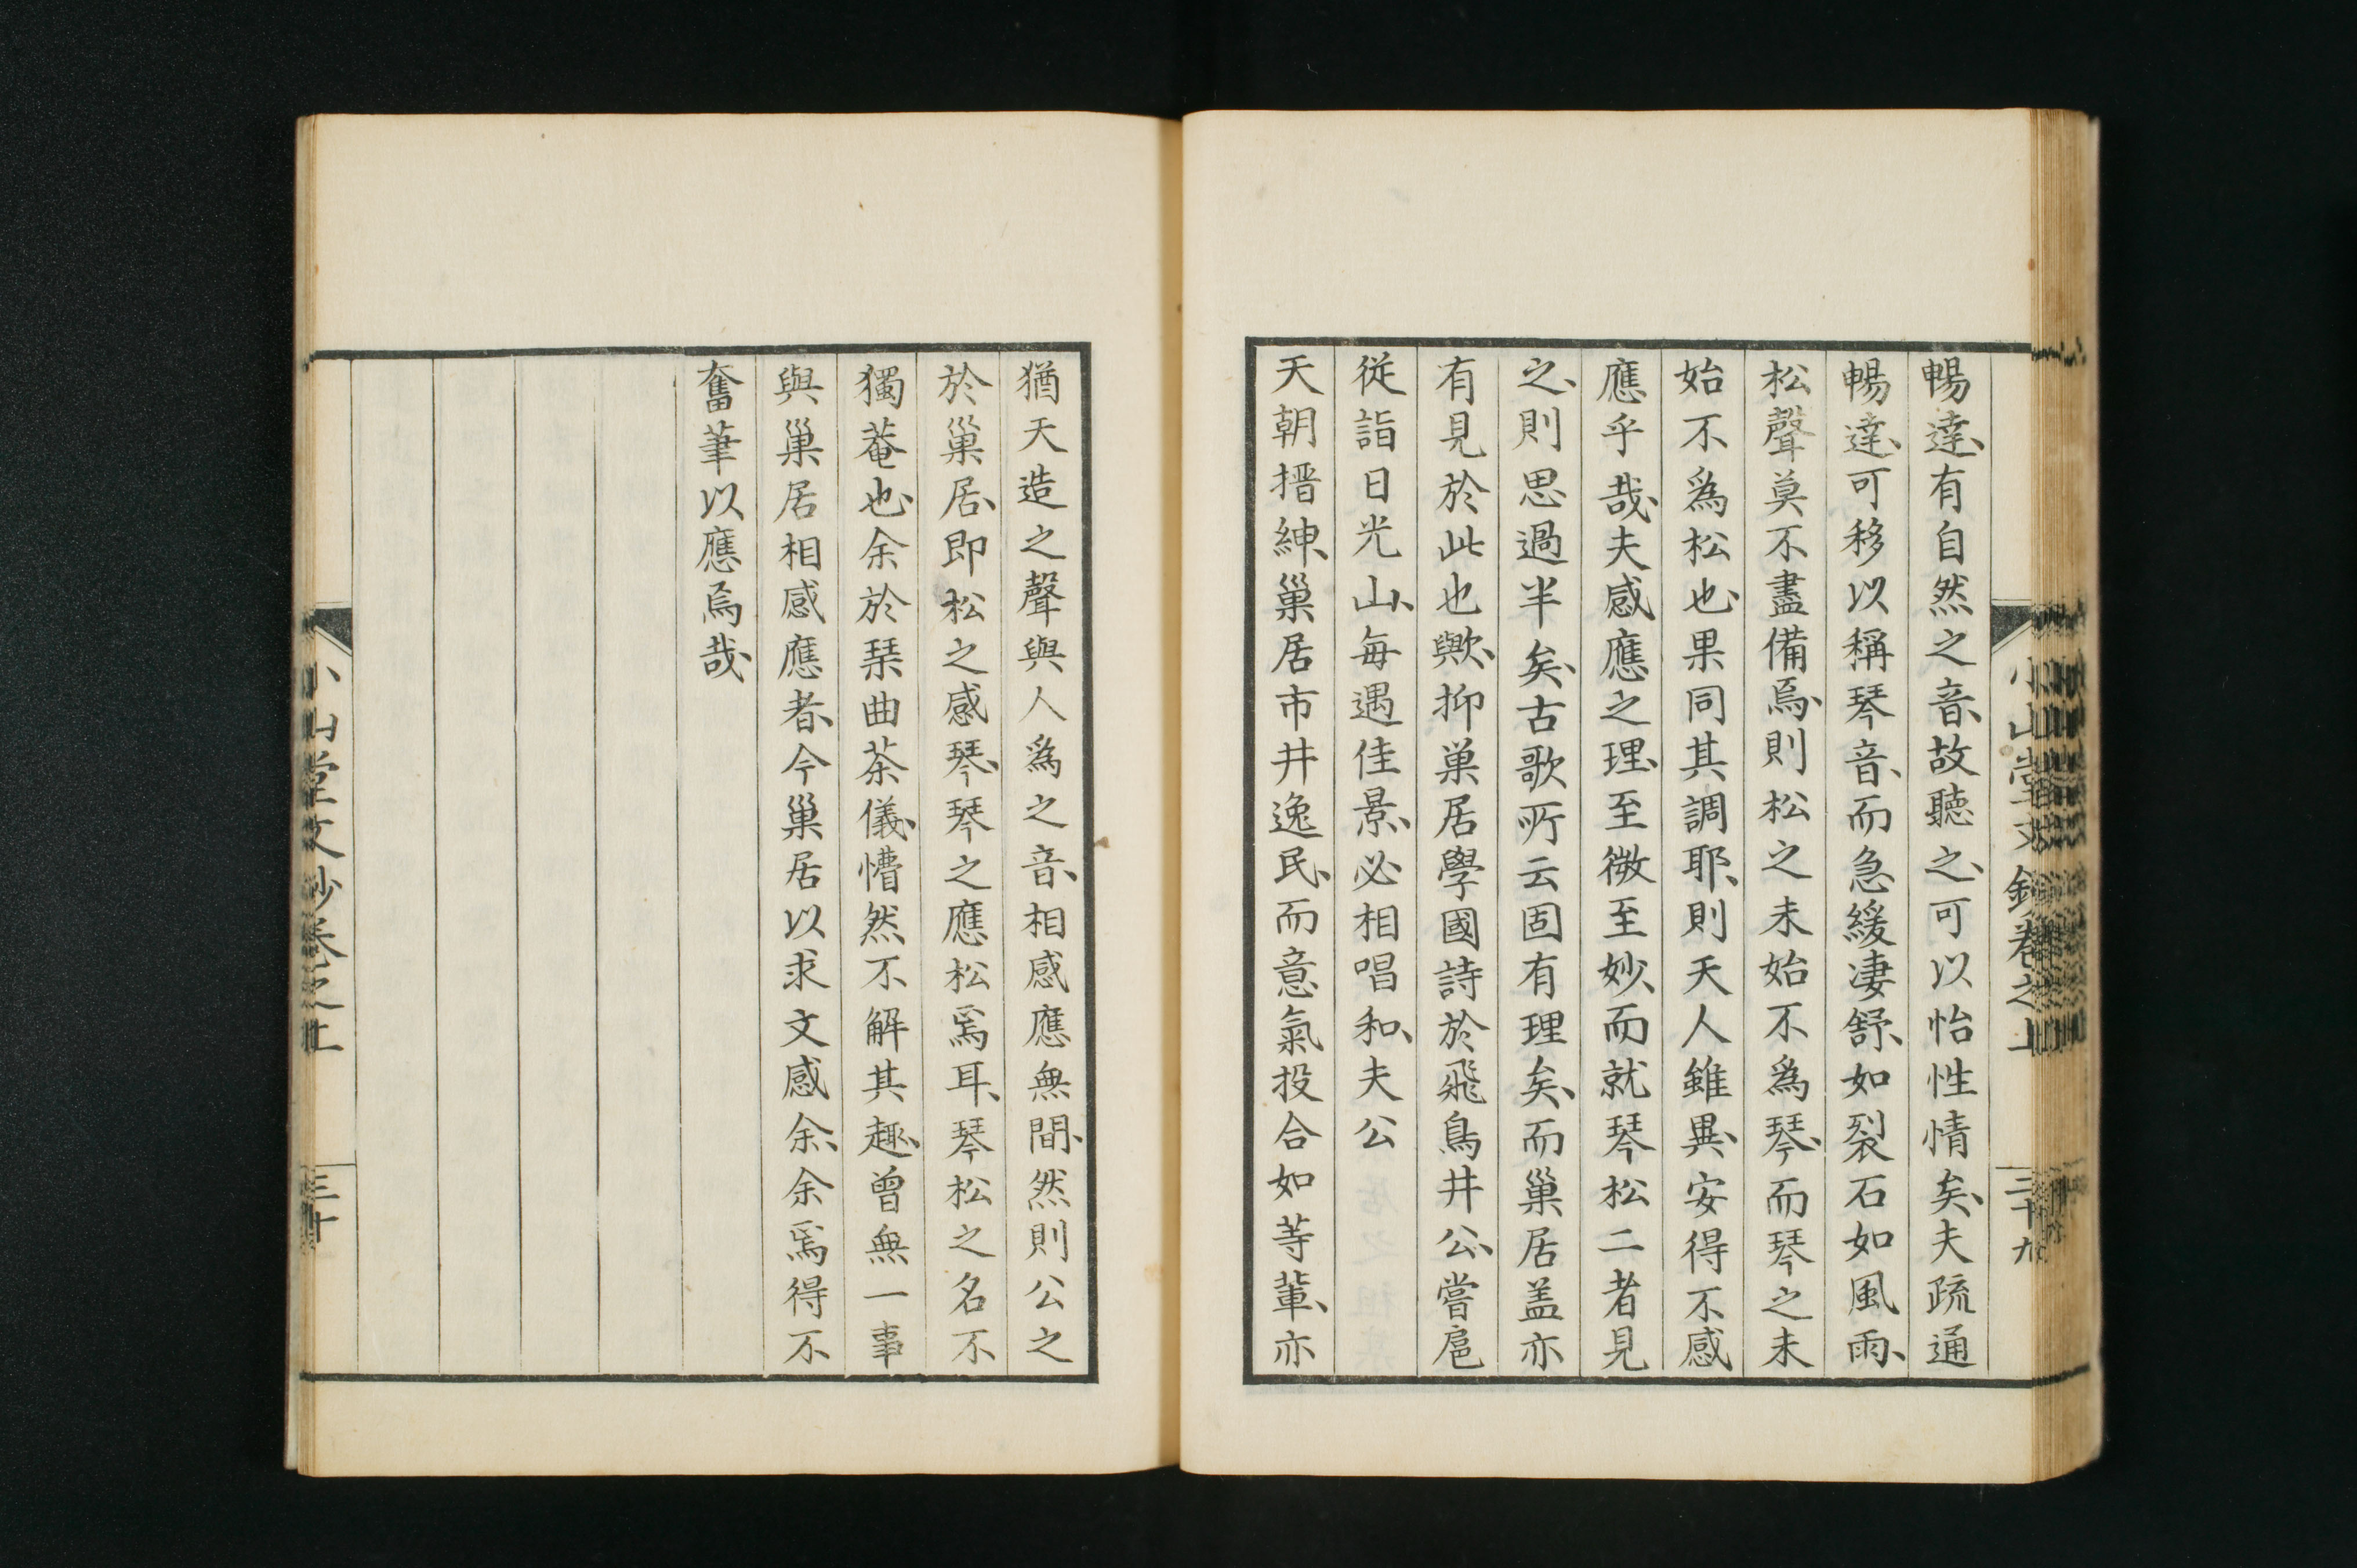 暢達、有自然之音、故聽之、可以怡性情矣、夫疏通
暢達、可移以稱琴音、而急緩凄舒、如裂石如風雨、
松聲莫不盡備焉、則松之未始不爲琴、而琴之未
始不爲松也、果同其調耶、則天人雖異、安得不感
應乎哉、夫感應之理、至微至妙、而就琴松二者見
之、則思過半矣、古歌所云固有理矣、而巢居盖亦
有見於此也歟、抑巢居學國詩於飛鳥井公、公嘗扈
從詣日光山、每遇佳景、必相唱和、夫公
天朝搢紳、巢居市井逸民、而意氣投合如等輩、亦
小山堂文鈔卷之上
二十九
猶天造之聲與人爲之音、相感應無間、然則公之
於巢居、即松之感琴、琴之應松焉耳、琴松之名不、
獨菴也、余於琹曲茶儀、懵然不解其趣、曾無一事
與巢居相感應者、今巢居以求文感余、余焉得不
奮筆以應焉哉、
小山堂文鈔卷之上
三十